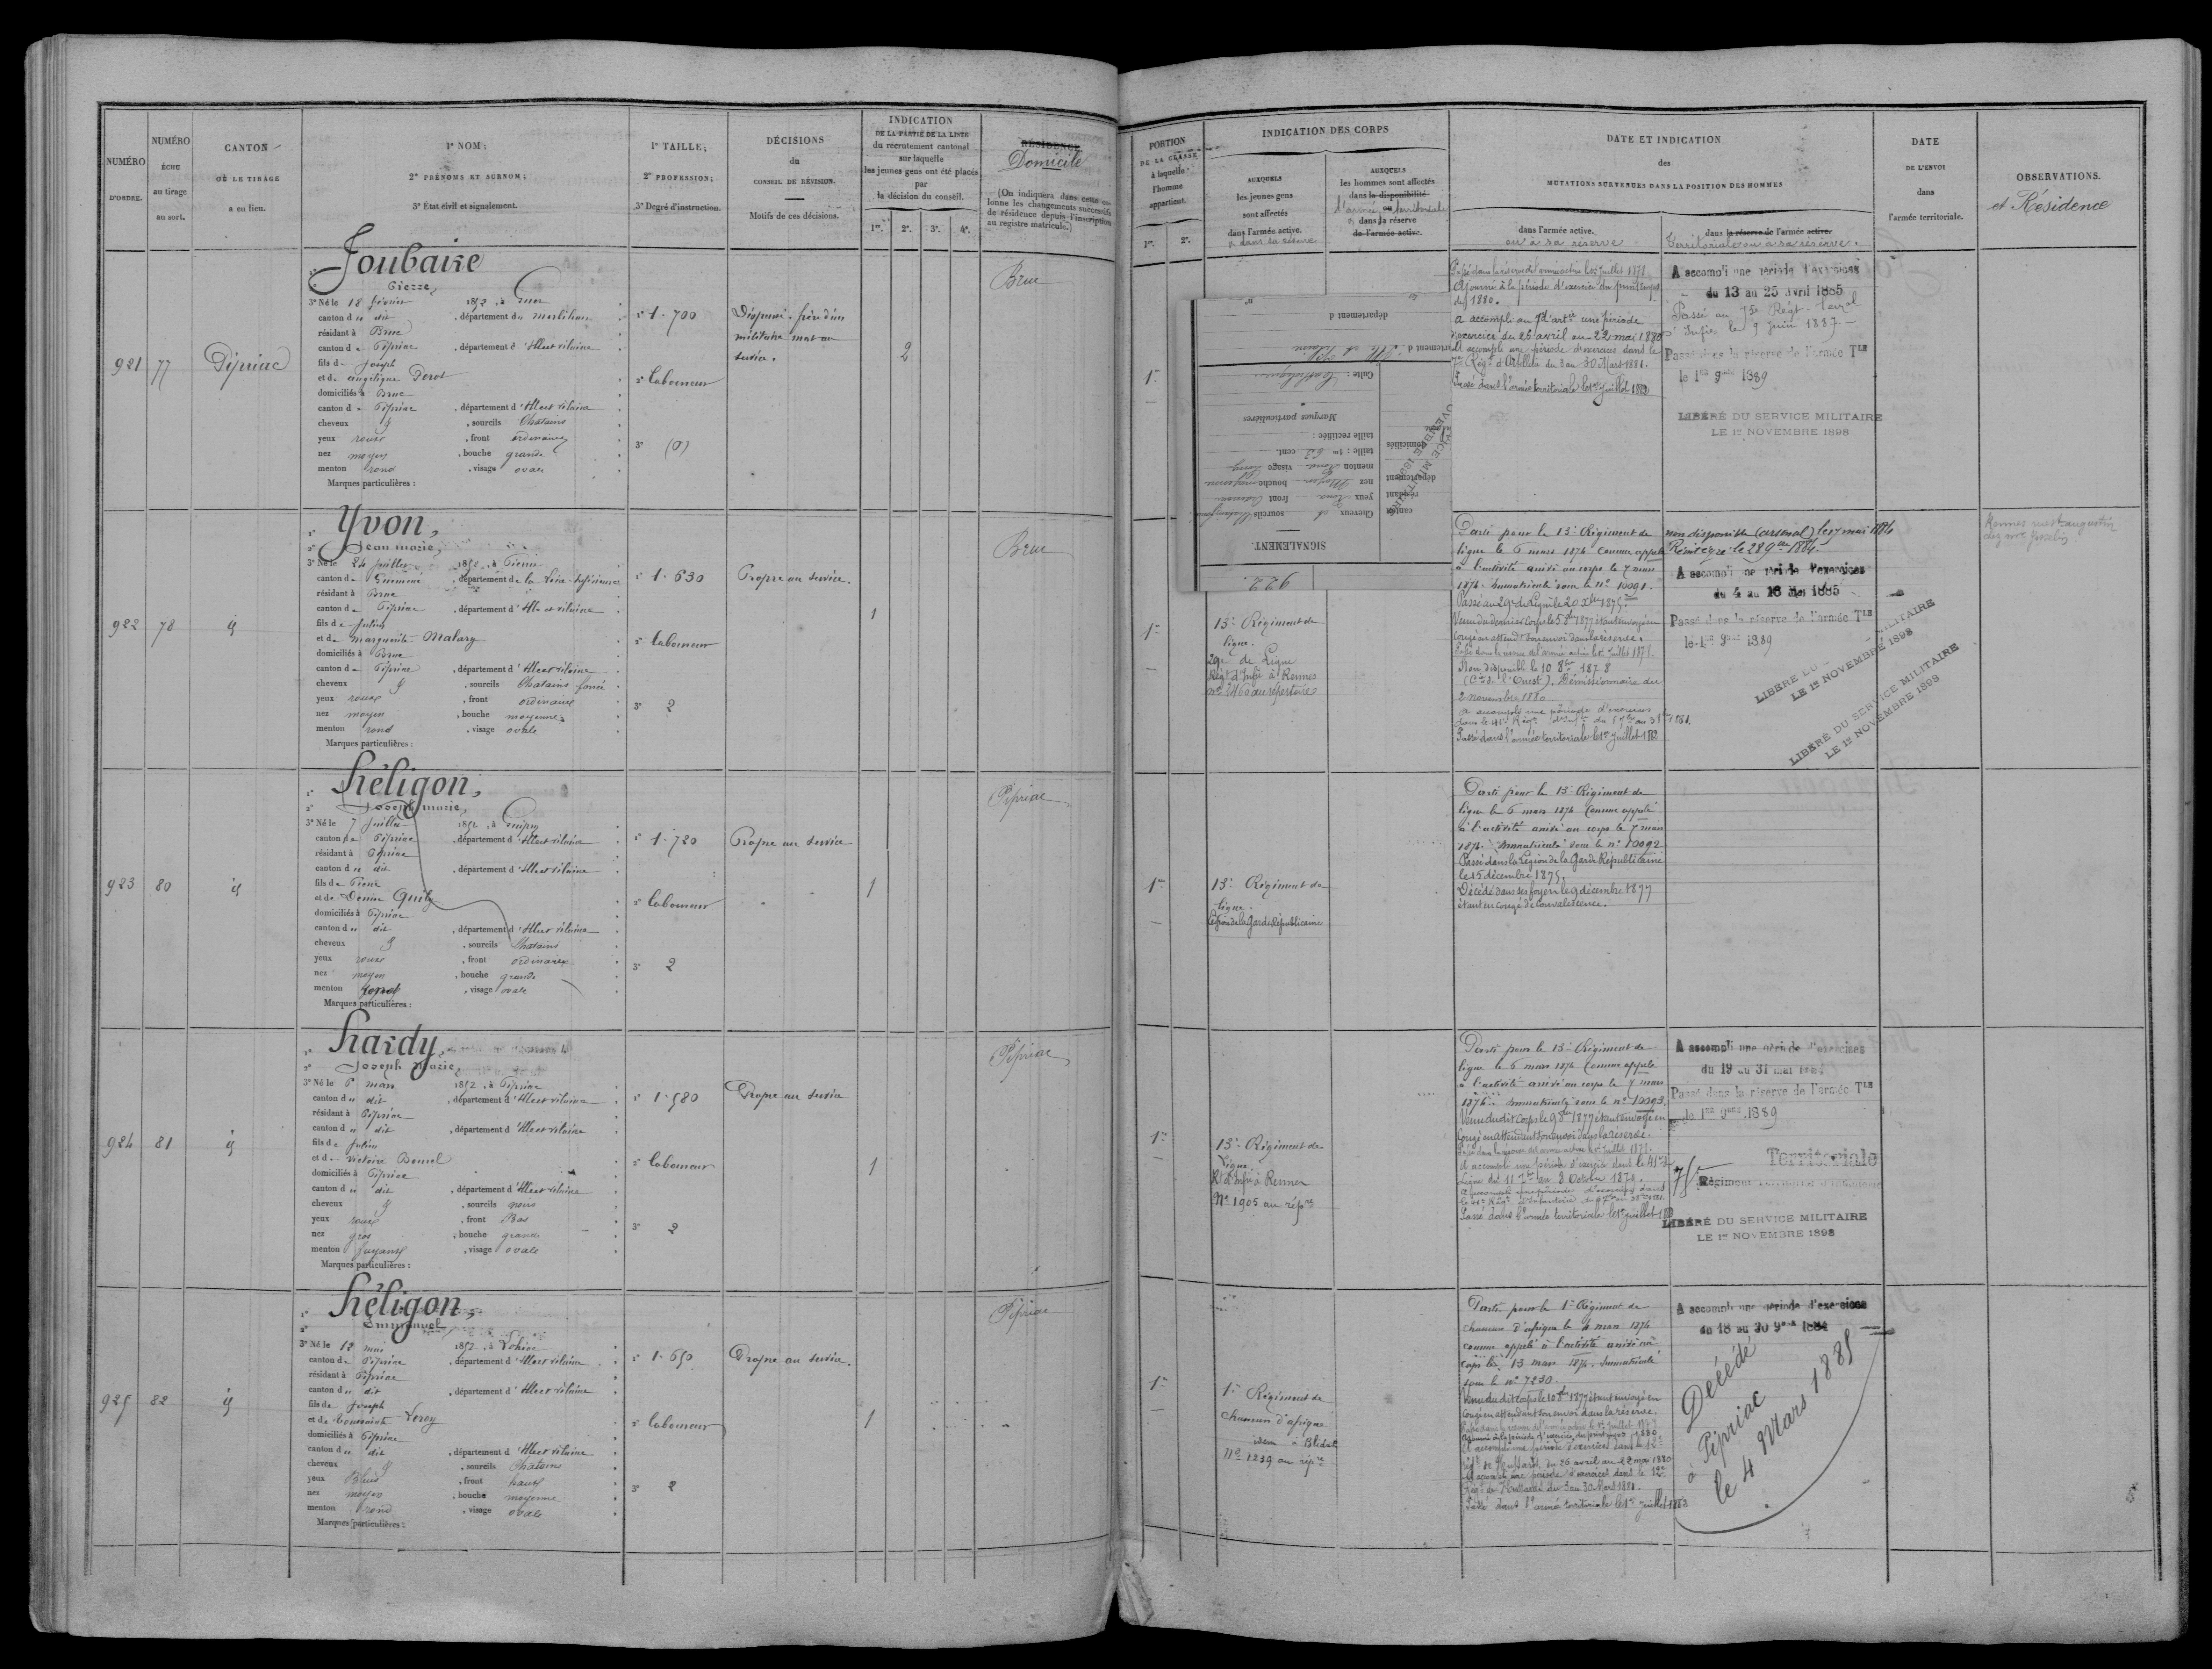 NUMÉRO
D'ORDRE.
NUMÉRO
ÉCHU
au tirage
au sort.
CANTON
OÙ LE TIRAGE
a eu lieu.
1° NOM;
2° PRÉNOMS ET SURNOM;
3° État civil et signalement.
1° TAILLE;
2° PROFESSION;
3° Degré d'instruction.
DÉCISIONS
du
CONSEIL DE RÉVISION.
Motifs de ces décisions.
INDICATION
DE LA PARTIE DE LA LISTE
du recrutement cantonal
sur laquelle
les jeunes gens ont été placés
par
la décision du conseil.
1re. 2e. 3e. 4e.
RÉSIDENCE
Domicile
(On indiquera dans cette co-
lonne les changements successifs
de résidence depuis l'inscription
au registre matricule.)
921
77
Pipriac
Joubaire
Pierre,
3° Né le 18 février 1852, à Guer
canton d u dit, département du Morbihan
résidant à Bruc
canton de Pipriac, département d'Ille et vilaine
fils de Joseph
et de angélique
domiciliés à Bruc
canton de Pipriac, département d'Ille et vilaine
cheveux, sourcils Chatains
yeux roux, front ordinaire
nez moyen, bouche grande
menton rond, visage ovale
Marques particulières :
1° 1.700
2° laboureur
3° (0)
Dispensé. frère d'un
militaire mort au
service.
2
Bruc
922
78
id
Yvon,
Jean marie,
3° Né le 24 juillet 1852, à Pierric
canton de Guémené, département de la Loire-Inférieure
résidant à Bruc
canton de Pipriac, département d'Ille et vilaine
fils de Julien
et de marguerite Malary
domiciliés à Bruc
canton de Pipriac, département d'Ille et vilaine
cheveux, sourcils Chatains foncé
yeux roux, front ordinaire
nez moyen, bouche moyenne
menton rond, visage ovale
Marques particulières :
1° 1.630
2° laboureur
3° 2
Propre au service.
1
Bruc
923
80
id
héligon,
Joseph marie,
3° Né le 7 juillet 1852, à Guipry
canton de Pipriac, département d'Ille et vilaine
résidant à Pipriac
canton du dit, département d'Ille et vilaine
fils de Pierre
et de Denise
domiciliés à Pipriac
canton du dit, département d'Ille et vilaine
cheveux, sourcils Chatains
yeux roux, front ordinaire
nez moyen, bouche grande
menton rond, visage ovale
Marques particulières :
1° 1.720
2° laboureur
3° 2
Propre au service
1
Pipriac
924
81
id
hardy,
Joseph Marie,
3° Né le 6 mars 1852, à Pipriac
canton du dit, département d'Ille et vilaine
résidant à Pipriac
canton du dit, département d'Ille et vilaine
fils de Julien
et de victoire
domiciliés à Pipriac
canton du dit, département d'Ille et vilaine
cheveux, sourcils noirs
yeux roux, front Bas
nez gros, bouche grande
menton fuyant, visage ovale
Marques particulières :
1° 1.580
2° laboureur
3° 2
Propre au service
1
Pipriac
925
82
id
héligon,
Emmanuel
3° Né le 12 mai 1852, à Lohéac
canton de Pipriac, département d'Ille et vilaine
résidant à Pipriac
canton du dit, département d'Ille et vilaine
fils de Joseph
et de toussainte
domiciliés à Pipriac
canton du dit, département d'Ille et vilaine
cheveux, sourcils Chatains
yeux Bleus, front haut
nez moyen, bouche moyenne
menton rond, visage ovale
Marques particulières :
1° 1.650
2° laboureur
3° 2
Propre au service.
1
Pipriac
PORTION
DE LA CLASSE
à laquelle
l'homme
appartient.
1re. 2e.
INDICATION DES CORPS
AUXQUELS
les jeunes gens
sont affectés
dans l'armée active.
et dans sa réserve
AUXQUELS
les hommes sont affectés
dans la disponibilité
ou
l'armée territoriale
et dans sa réserve
de l'armée active.
DATE ET INDICATION
des
MUTATIONS SURVENUES DANS LA POSITION DES HOMMES
dans l'armée active.
ou à sa réserve
dans la réserve de l'armée active.
Territoriale ou à sa réserve.
DATE
DE L'ENVOI
dans
l'armée territoriale.
OBSERVATIONS.
et Résidence
1re
Passé dans la réserve de l'armée active le 1er juillet 1878.
Ajourné à la période d'exercice du printemps
de 1880.
a accompli au 7e d'artie une période
d'exercice du 26 avril au 22 mai 1880
a accompli une période d'exercices dans le
7e Régt d'Artillerie du 3 au 30 Mars 1881.
Passé dans l'armée territoriale le 1er juillet 1882
A accompli une période d'exercices
du 13 au 25 Avril 1885
Passé au 75e Régt terral
d'Infie le 9 juin 1887
Passé dans la réserve de l'armée Tle
le 1er 9bre 1889
LIBÉRÉ DU SERVICE MILITAIRE
LE 1er NOVEMBRE 1898
922.
SIGNALEMENT.
Cheveux sourcils
yeux front
nez Moyen bouche moyenne
menton Rond visage
taille : 1m 63 cent.
taille rectifiée :
Marques particulières
Culte : Catholique
département d
1re
13e Régiment de
ligne.
29e de Ligne
Régt d'Infie à Rennes
No 2460 au répertoire
Parti pour le 13e Régiment de
ligne le 6 mars 1874 comme appelé
à l'activité arrivé au corps le 7 mars
1874. Immatriculé sous le n° 10091.
Passé au 29e de Ligne le 20 Xbre 1875.
Venu du dernier Corps le 5 8bre 1877 étant envoyé en
Congé en attendt son envoi dans la réserve.
Passé dans la réserve de l'armée active le 1er juillet 1878.
Non disponible le 10 8bre 1878
(Cie de l'Ouest). Démissionnaire du
2 novembre 1880
a accompli une période d'exercices
Passé dans l'armée territoriale le 1er juillet 1882
non disponible (arsenal) le 17 mai 1884
Réintégré le 28 9bre 1884.
A accompli une période d'exercices
du 4 au 16 Mai 1885
Passé dans la réserve de l'armée Tle
le 1er 9bre 1889
LIBÉRÉ DU SERVICE MILITAIRE
LE 1er NOVEMBRE 1898
LIBÉRÉ DU SERVICE MILITAIRE
LE 1er NOVEMBRE 1898
Rennes rue St augustin
chez Mme
1re
13e Régiment de
ligne.
Légion de la Garde Républicaine
Parti pour le 13e Régiment de
ligne le 6 mars 1874 comme appelé
à l'activité arrivé au corps le 7 mars
1874. Immatriculé sous le n° 10092
Passé dans la Légion de la Garde Républicaine
le 15 décembre 1875.
Décédé dans ses foyers le 9 décembre 1877
étant en congé de convalescence.
1re
13e Régiment de
Ligne.
Rt d'Infie à Rennes
No 1905 au répre
Parti pour le 13e Régiment de
ligne le 6 mars 1874 comme appelé
à l'activité arrivé au corps le 7 mars
1874. Immatriculé sous le n° 10093.
Venu du dit Corps le 9 8bre 1877 étant envoyé en
Congé en attendant son envoi dans la réserve.
Passé dans la réserve de l'armée active le 1er juillet 1878.
A accompli une période d'exercice dans le 41e de
Ligne du 11 7bre au 8 Octobre 1879.
Passé dans l'armée territoriale le 1er juillet 1882
A accompli une période d'exercices
du 19 au 31 mai
Passé dans la réserve de l'armée Tle
le 1er 9bre 1889
75e Territoriale
Régiment
LIBÉRÉ DU SERVICE MILITAIRE
LE 1er NOVEMBRE 1898
1re
1er Régiment de
chasseurs d'afrique
idem à Blidah
No 1239 au répre
Parti pour le 1er Régiment de
chasseurs d'afrique le 4 mars 1874
comme appelé à l'activité arrivé au
corps le 13 mars 1874. Immatriculé
sous le n° 7230.
Venu du dit corps le 10 8bre 1877 étant envoyé en
Congé en attendant son envoi dans la réserve.
Passé dans la réserve de l'armée active le 1er juillet 1878
Ajourné à la période d'exercice du printemps 1880
A accompli une période d'exercices dans le 12e
Régt de Hussards du 26 avril au 22 mai 1880
A accompli une période d'exercices dans le 12e
Régt de Hussards du 3 au 30 Mars 1881.
Passé dans l'armée territoriale le 1er juillet 1883
A accompli une période d'exercices
du 18 au 30 9bre 1884
Décédé
à Pipriac
le 4 Mars 1885